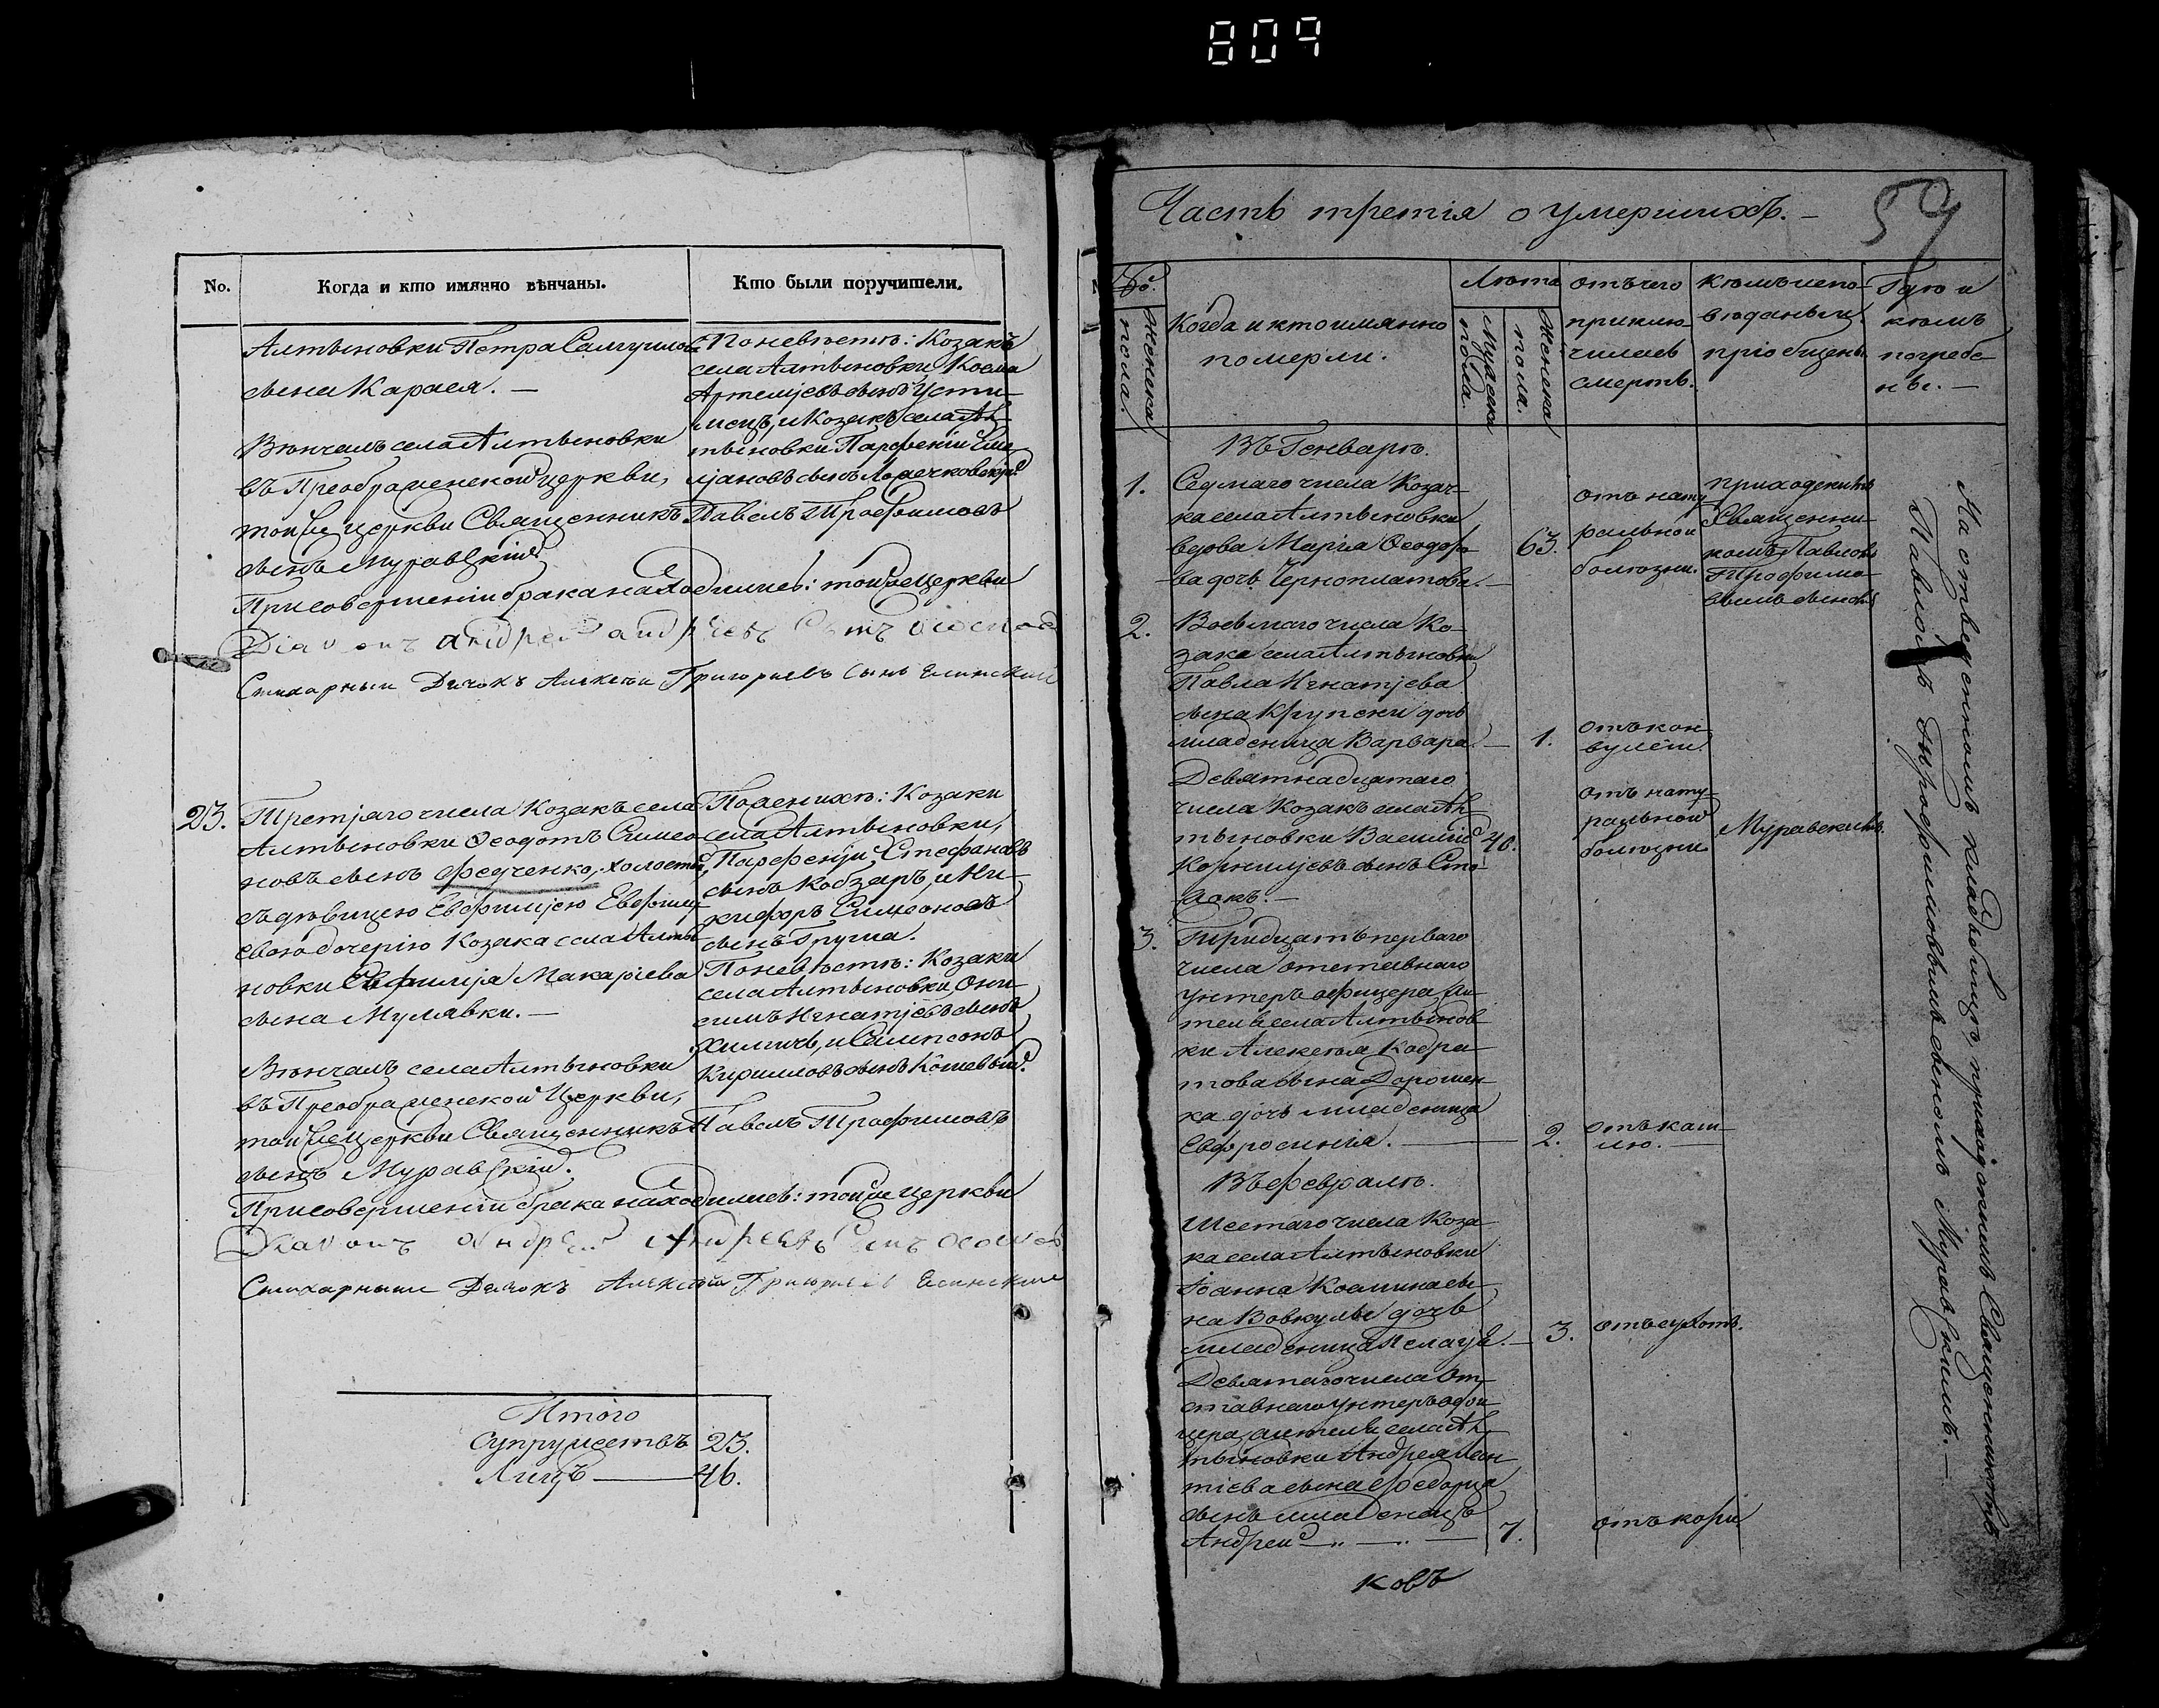 809
No.
Когда и кто имянно вѣнчаны.
Кто были поручители.
Алтыновки Петра Самуилова
сына Карася. —
Вѣнчалъ села Алтыновки
въ Преображенской церкви,
той же церкви Священникъ Павелъ Трофимовъ
сынъ Муравскій
При совершеніи брака находились: той же Церкви
Діаконъ Андрей Андреевъ Сынъ
Стихарный Дячокъ Алексѣй Григорьевъ Сынъ Есинскій
По невѣстѣ: Козакъ
села Алтыновки Косма
Артемьевъ сынъ
и Козакъ села Ал-
тыновки Парфеній Еме
ліановъ сынъ
23.
Третjяго числа Козакъ села
Алтыновки Феодотъ Симео
новъ сынъ Федченко, холостый,
съ дѣвицею Евфиміею Евфимі
евою дочерію Козака села Алты
новки Евфиміја Макаріева
сына Мулявки. —
Вѣнчалъ села Алтыновки
въ Преображенской Церкви,
той же Церкви Священникъ Павелъ Трофимовъ
сынъ Муравскій.
При совершеніи брака находились: той же церкви
Діаконъ Андрей Андреевъ Сынъ
Стихарный Дячокъ Алексѣй Григорьевъ Есинскій
По женихѣ: Козаки
села Алтыновки,
Парфеній Стефановъ
сынъ Кобзаръ, и Ни-
кифоръ Симеоновъ
сынъ Груша.
По невѣстѣ: Козаки
села Алтыновки Они-
симъ Игнатјевъ сынъ
Хиличъ, и Сампсонъ
Кирилловъ сынъ Кошевый.
Итого
Супружествъ 23.
Лицъ — 46.
Часть третія о умершихъ. —
59
No.
Женска
пола.
Когда и кто имянно
померли.
Лѣта
Мужеска
пола.
Женска
пола.
Отъ чего
приклю-
чилась
смерть.
Кѣмъ испо-
вѣданы и
пріобщены
Гдѣ и
кѣмъ
погребе-
ны. —
Въ Генварѣ.
1.
Седмаго числа Козач-
ка села Алтыновки
вдова Марія Феодоро
ва дочь Черноплатова. —
63.
отъ нату
ральной
болѣзни.
приходскимъ
Священни-
комъ Павломъ
Трофимо-
вымъ сыномъ
2.
Восьмаго числа Ко-
зака села Алтыновки
Павла Игнатјева
сына Крупски дочь
младеница Варвара. —
1.
отъ кон
вулсіи
Девятнадцатаго
числа Козакъ села Ал
тыновки Василій
Корнилјевъ сынъ Сто-
40.
отъ нату-
ральной
болѣзни
Муравскимъ.
3.
Тридцать перваго
числа отставнаго
унтеръ офицера жи
теля села Алтынов
ки Алексѣя Кодра-
това сына Дорошен-
ка дочь младеница
Евфросинія. —
2.
отъ каш-
лю. —
Въ февралѣ.
Шестаго числа Коза
ка села Алтыновки
Іоанна Космина сы-
на Вовкулы дочь
младеница Пелагія. —
3.
отъ сухотъ.
Девятаго числа От
ставнаго унтеръ офи
цера жителя села Ал
тыновки Андрея Леон
тіева сына Федорца
сынъ младенецъ
Андрей — „ — „ —
7.
отъ кори
На отведенномъ кладбищѣ, приходскимъ Священникомъ
Павломъ Трофимовымъ сыномъ Муравскимъ. —
ковъ